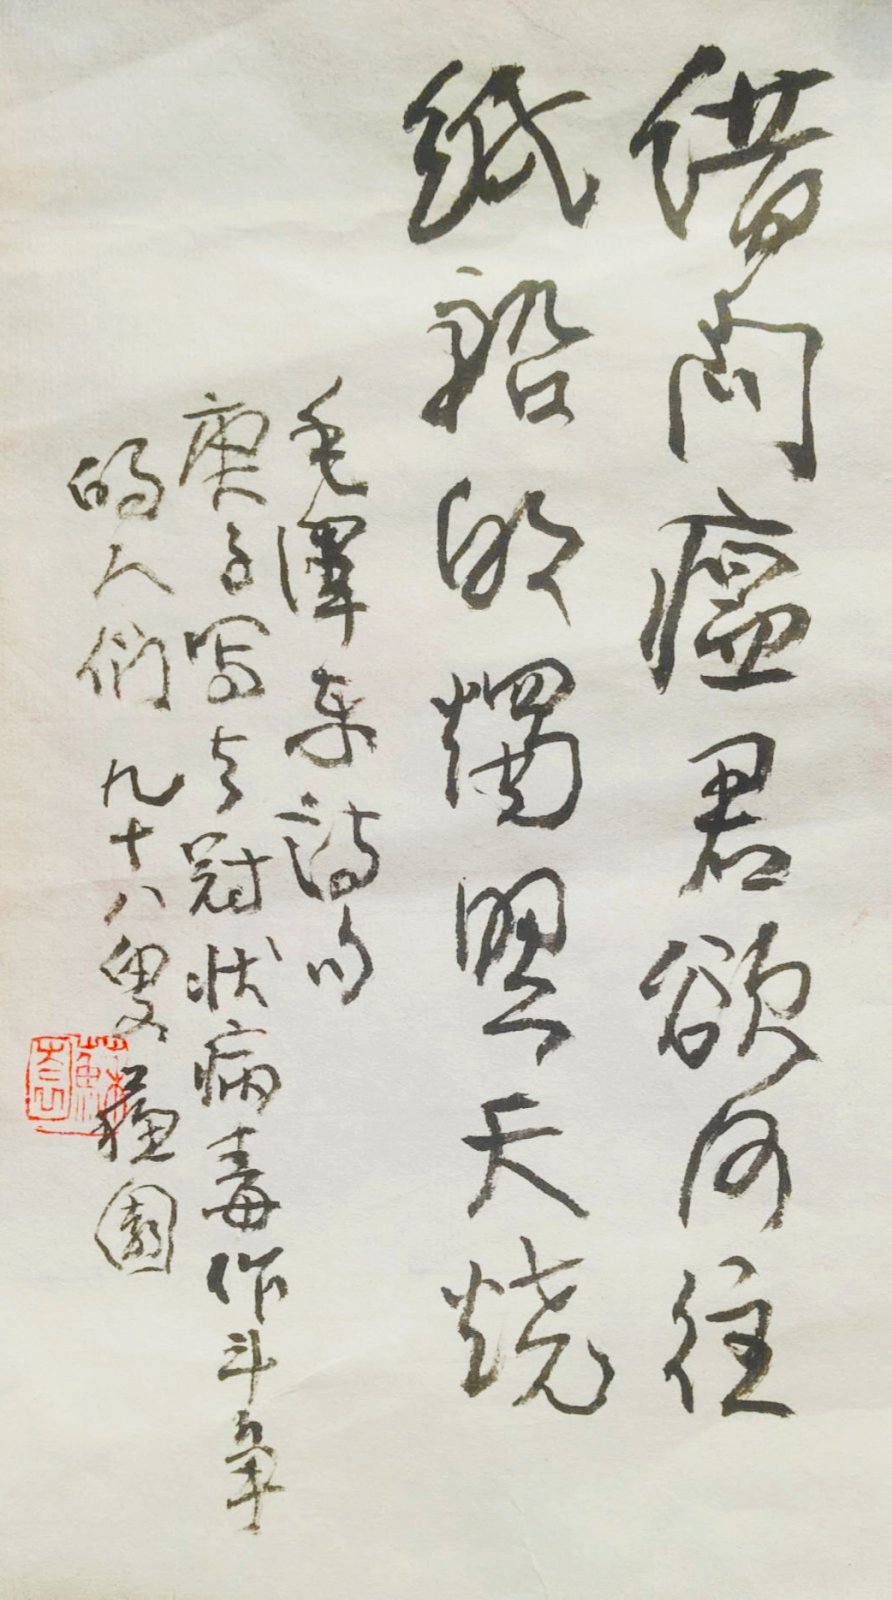 借问瘟君欲何往
纸船明燭照天烧
毛澤东詩句
庚子写与冠状病毒作斗争
的人们 九十八叟